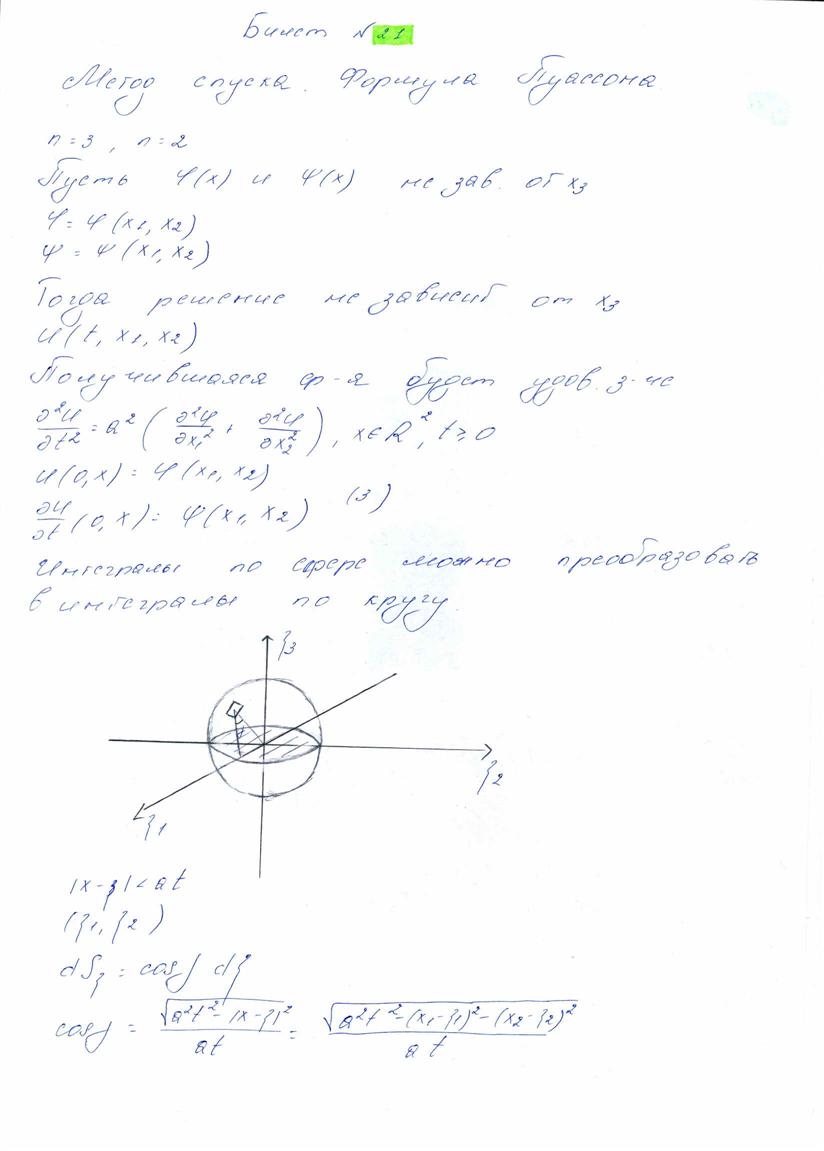 Билет № 21
Метод спуска. Формула Пуассона
n=3, n=2
Пусть φ(x) и ψ(x) не зав. от x₃
φ = φ(x₁, x₂)
ψ = ψ(x₁, x₂)
Тогда решение не зависит от x₃
u(t, x₁, x₂)
Получившаяся ф-я будет удов. з-че
∂²u/∂t² = a² ( ∂²u/∂x₁² + ∂²u/∂x₂² ), x∈R², t≥0
u(0,x) = φ(x₁, x₂)
∂u/∂t (0,x) = ψ(x₁, x₂) (3)
Интегралы по сфере можно преобразовать
в интегралы по кругу
ξ₃
ξ₂
ξ₁
|x-ξ| < at
(ξ₁, ξ₂)
dS_ξ = cosγ dξ
cosγ = √(a²t² - |x-ξ|²) / at = √(a²t² - (x₁-ξ₁)² - (x₂-ξ₂)²) / at